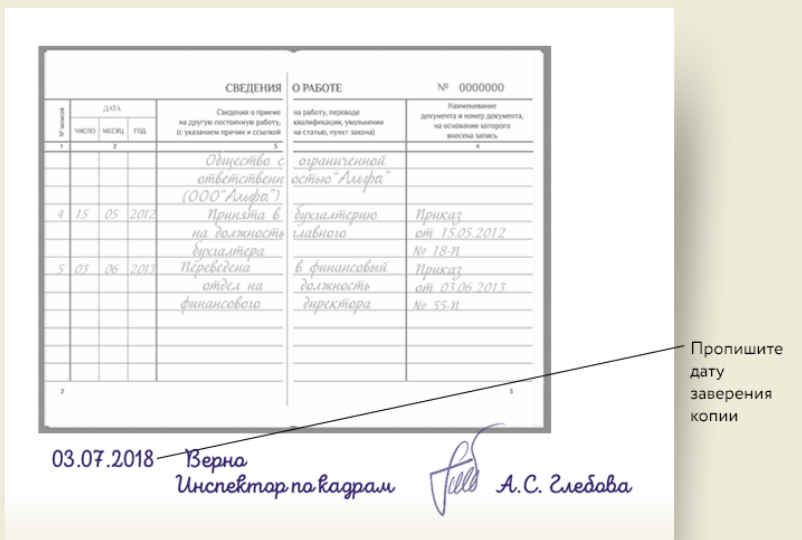 СВЕДЕНИЯ О РАБОТЕ № 0000000
№ записи
ДАТА
ЧИСЛО МЕСЯЦ ГОД
Сведения о приеме на работу, переводе
на другую постоянную работу, квалификации, увольнении
(с указанием причин и ссылкой на статью, пункт закона)
Наименование
документа и номер документа,
на основании которого
внесена запись
1 2 3 4
Общество с ограниченной
ответственностью "Альфа"
(ООО "Альфа")
4 15 05 2012 Принята в бухгалтерию Приказ
на должность главного от 15.05.2012
бухгалтера № 18-п
5 03 06 2013 Переведена в финансовый Приказ
отдел на должность от 03.06.2013
финансового директора № 55-п
2 5
Пропишите
дату
заверения
копии
03.07.2018 Верно
Инспектор по кадрам А.С. Глебова